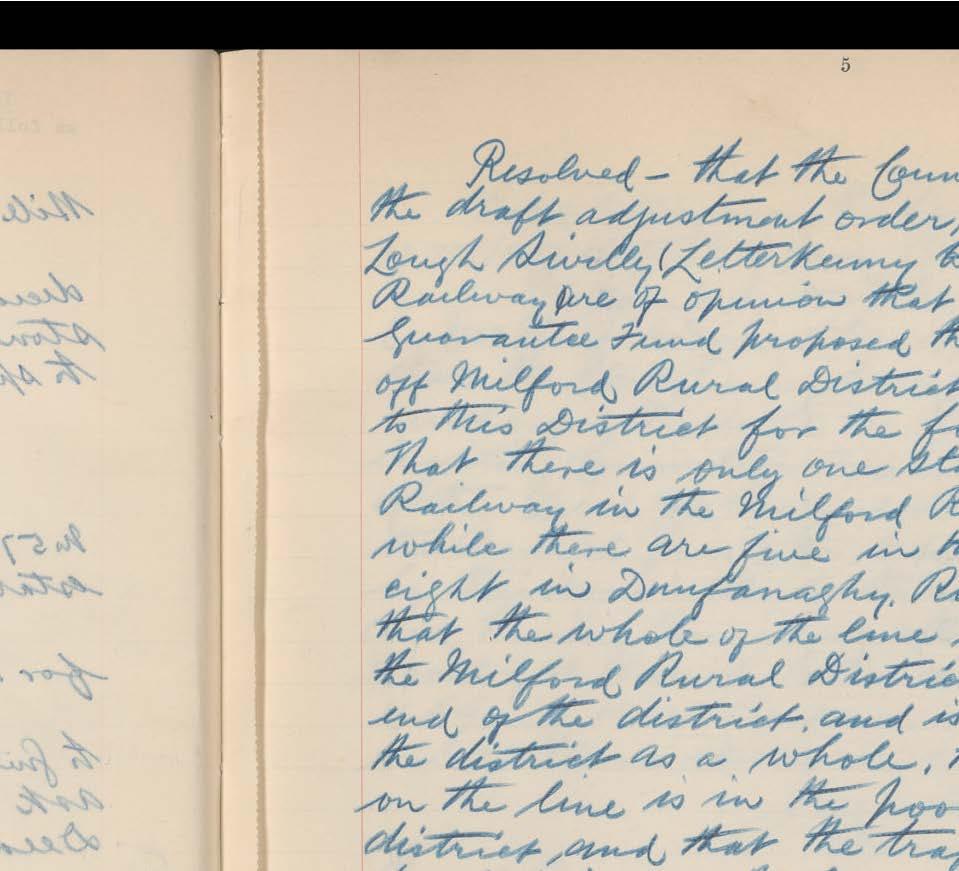 5
Resolved – that the Coun
the draft adjustment order,
Lough Swilly (Letterkenny
Railway are of opinion that
Guarantee Fund proposed th
off Milford Rural District
to this District for the fo
That there is only one sta
Railway in the Milford R
while there are five in
eight in Dunfanaghy. Ru
that the whole of the line
the Milford Rural Distric
end of the district, and is
the district as a whole.
on the line is in the poo
district, and that the traf